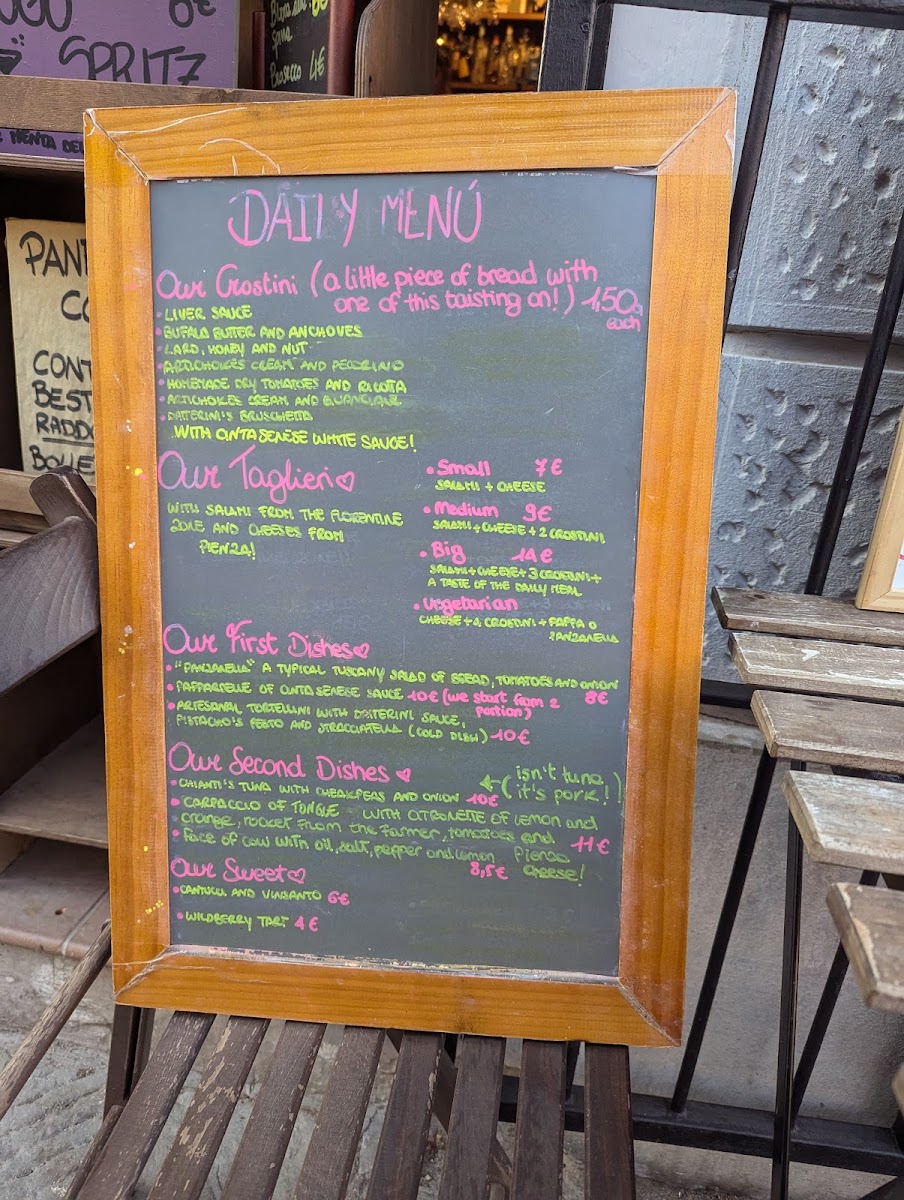 6€
SPRITZ
Prosecco 4€
MENTA
PAN
CO
CONT
BEST
RADD
BOLLE
DAILY MENÚ
Our Crostini (a little piece of bread with
one of this taisting on!) 1,50
each
• LIVER SAUCE
• BUFALO BUTTER AND ANCHOVES
• LARD, HONEY AND NUT
• ARTICHOKES CREAM AND PECORINO
• HOMEMADE DRY TOMATOES AND RICOTTA
• ARTICHOKES CREAM AND GUANCIALE
• DATERINI'S BRUSCHETTA
WITH CINTA SENESE WHITE SAUCE!
Our Taglieri ♡
WITH SALAMI FROM THE FLORENTINE
ZONE AND CHEESES FROM
PIENZA!
• Small 7€
SALAMI + CHEESE
• Medium 9€
SALAMI + CHEESE + 2 CROSTINI
• Big 14€
SALAMI + CHEESE + 3 CROSTINI +
A TASTE OF THE DAILY MEAL
• Vegetarian
CHEESE + 4 CROSTINI + PAPPA O
PANZANELLA
Our First Dishes ♡
• "PANZANELLA" A TYPICAL TUSCANY SALAD OF BREAD, TOMATOES AND ONION
8€
• PAPPARDELLE OF CINTA SENESE SAUCE 10€ (we start from 2
portion)
• ARTESANAL TORTELLINI WITH DATERINI SAUCE,
PISTACHO'S PESTO AND STRACCIATELLA (COLD DISH) 10€
Our Second Dishes ♡
• CHIANTI'S TUNA WITH CHEAKPEAS AND ONION 10€
← (isn't tuna
it's pork!)
• CARPACCIO OF TONGUE WITH CITRONETTE OF LEMON and
orange, rocket from the farmer, tomatoes and 11€
Pienza
cheese!
• Face of cow with oil, salt, pepper and lemon
8,5€
Our Sweet ♡
• CANTUCCI AND VINSANTO 6€
• WILDBERRY TART 4€